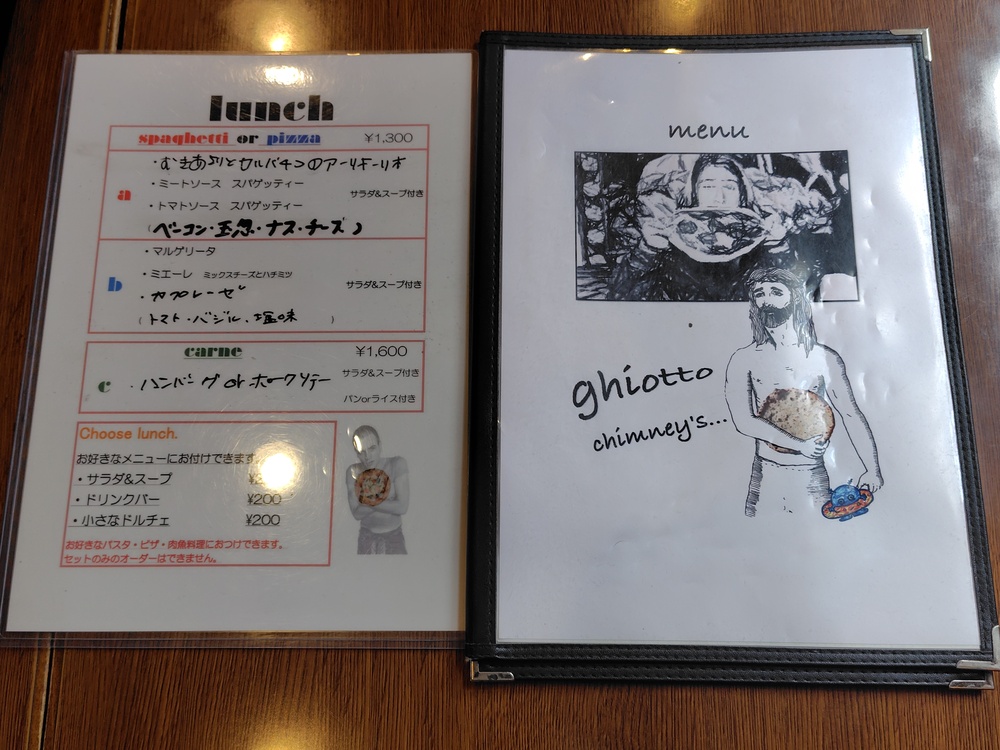 lunch
spaghetti or pizza ¥1,300
・むきあさりとセルバチコのアーリオ・オーリオ
a
・ミートソース スパゲッティー
サラダ&スープ付き
・トマトソース スパゲッティー
(ベーコン・玉ねぎ・ナス・チーズ)
・マルゲリータ
b
・ミエーレ ミックスチーズとハチミツ
サラダ&スープ付き
・カプレーゼ
(トマト・バジル、塩味 )
carne ¥1,600
c
・ハンバーグ or ポークソテー
サラダ&スープ付き
パンorライス付き
Choose lunch.
お好きなメニューにお付けできます
・サラダ&スープ
・ドリンクバー ¥200
・小さなドルチェ ¥200
お好きなパスタ・ピザ・肉魚料理におつけできます。
セットのみのオーダーはできません。
menu
ghiotto
chimney's...